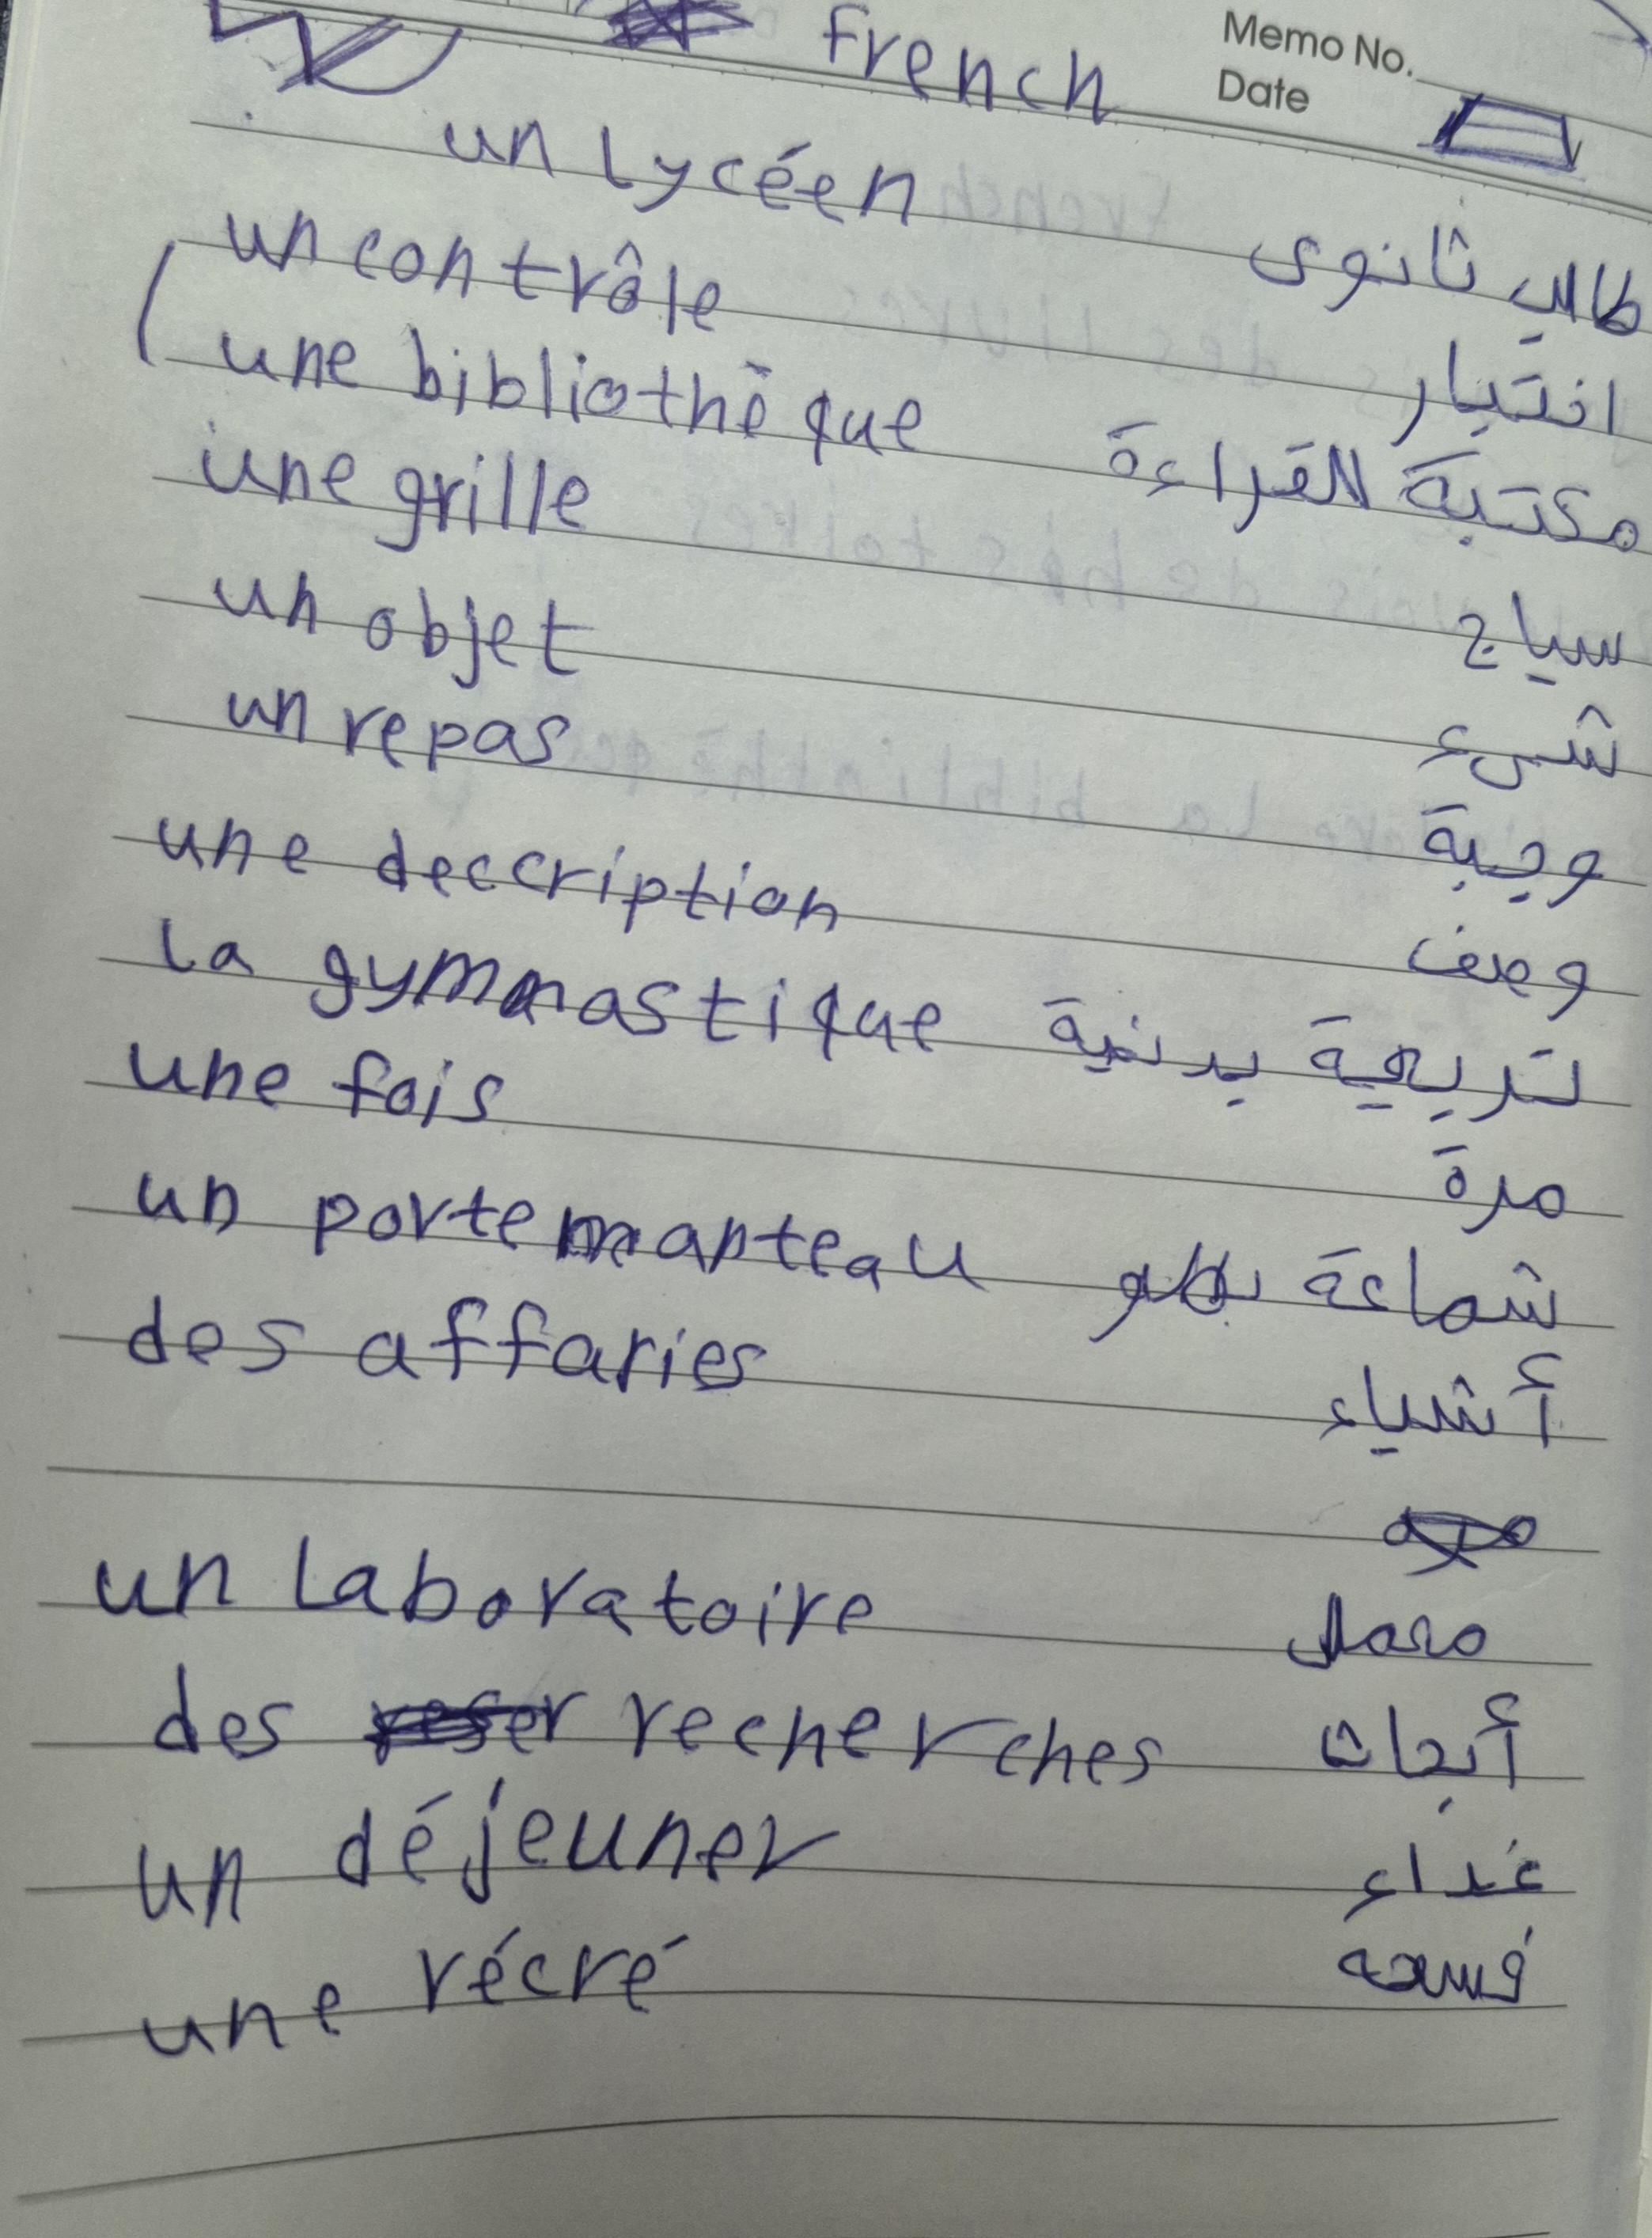 French Memo No.
Date
un Lycéen طالب ثانوى
un contrôle اختبار
une bibliothèque مكتبة للقراءة
une grille سياج
un objet شىء
un repas وجبة
une deccription وصف
la gymnastique تربية بدنية
une fois مرة
un portemanteau شماعة
des affaries أشياء
un Laboratoire معمل
des recherches أبحاث
un déjeuner غداء
une récré فسحه